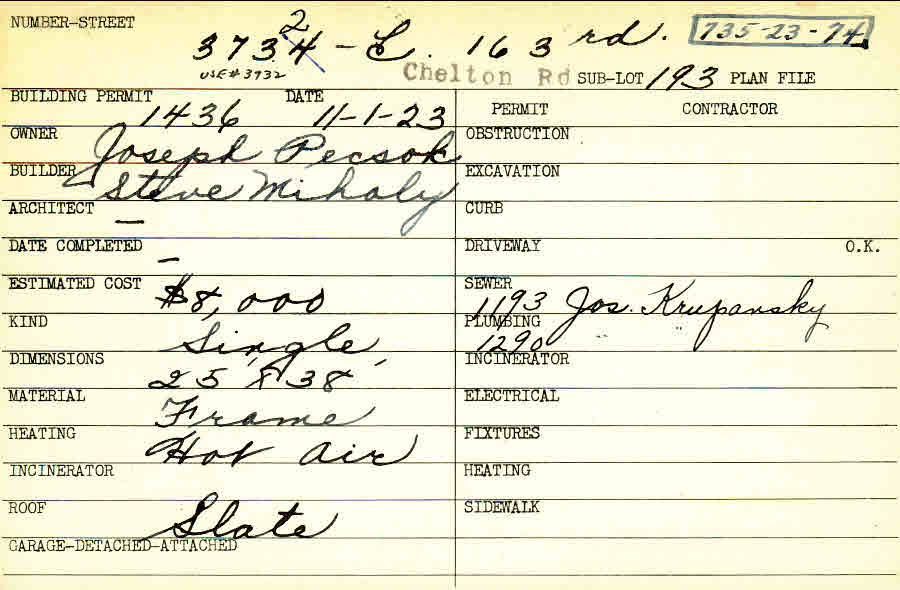 NUMBER-STREET 3734 2 - E. 163rd. 735-23-74
USE # 3732 Chelton Rd SUB-LOT 193 PLAN FILE
BUILDING PERMIT 1436 DATE 11-1-23 PERMIT CONTRACTOR
OWNER Joseph Pecsok OBSTRUCTION
BUILDER Steve Mihaly EXCAVATION
ARCHITECT — CURB
DATE COMPLETED — DRIVEWAY O.K.
ESTIMATED COST $8,000 SEWER 1193 Jos. Krupansky
KIND Single PLUMBING 1290
DIMENSIONS 25' x 38' INCINERATOR
MATERIAL Frame ELECTRICAL
HEATING Hot Air FIXTURES
INCINERATOR HEATING
ROOF Slate SIDEWALK
GARAGE-DETACHED-ATTACHED